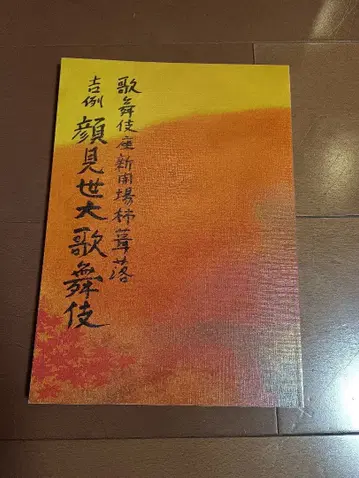 歌舞伎座新開場柿葺落
吉例 顔見世大歌舞伎